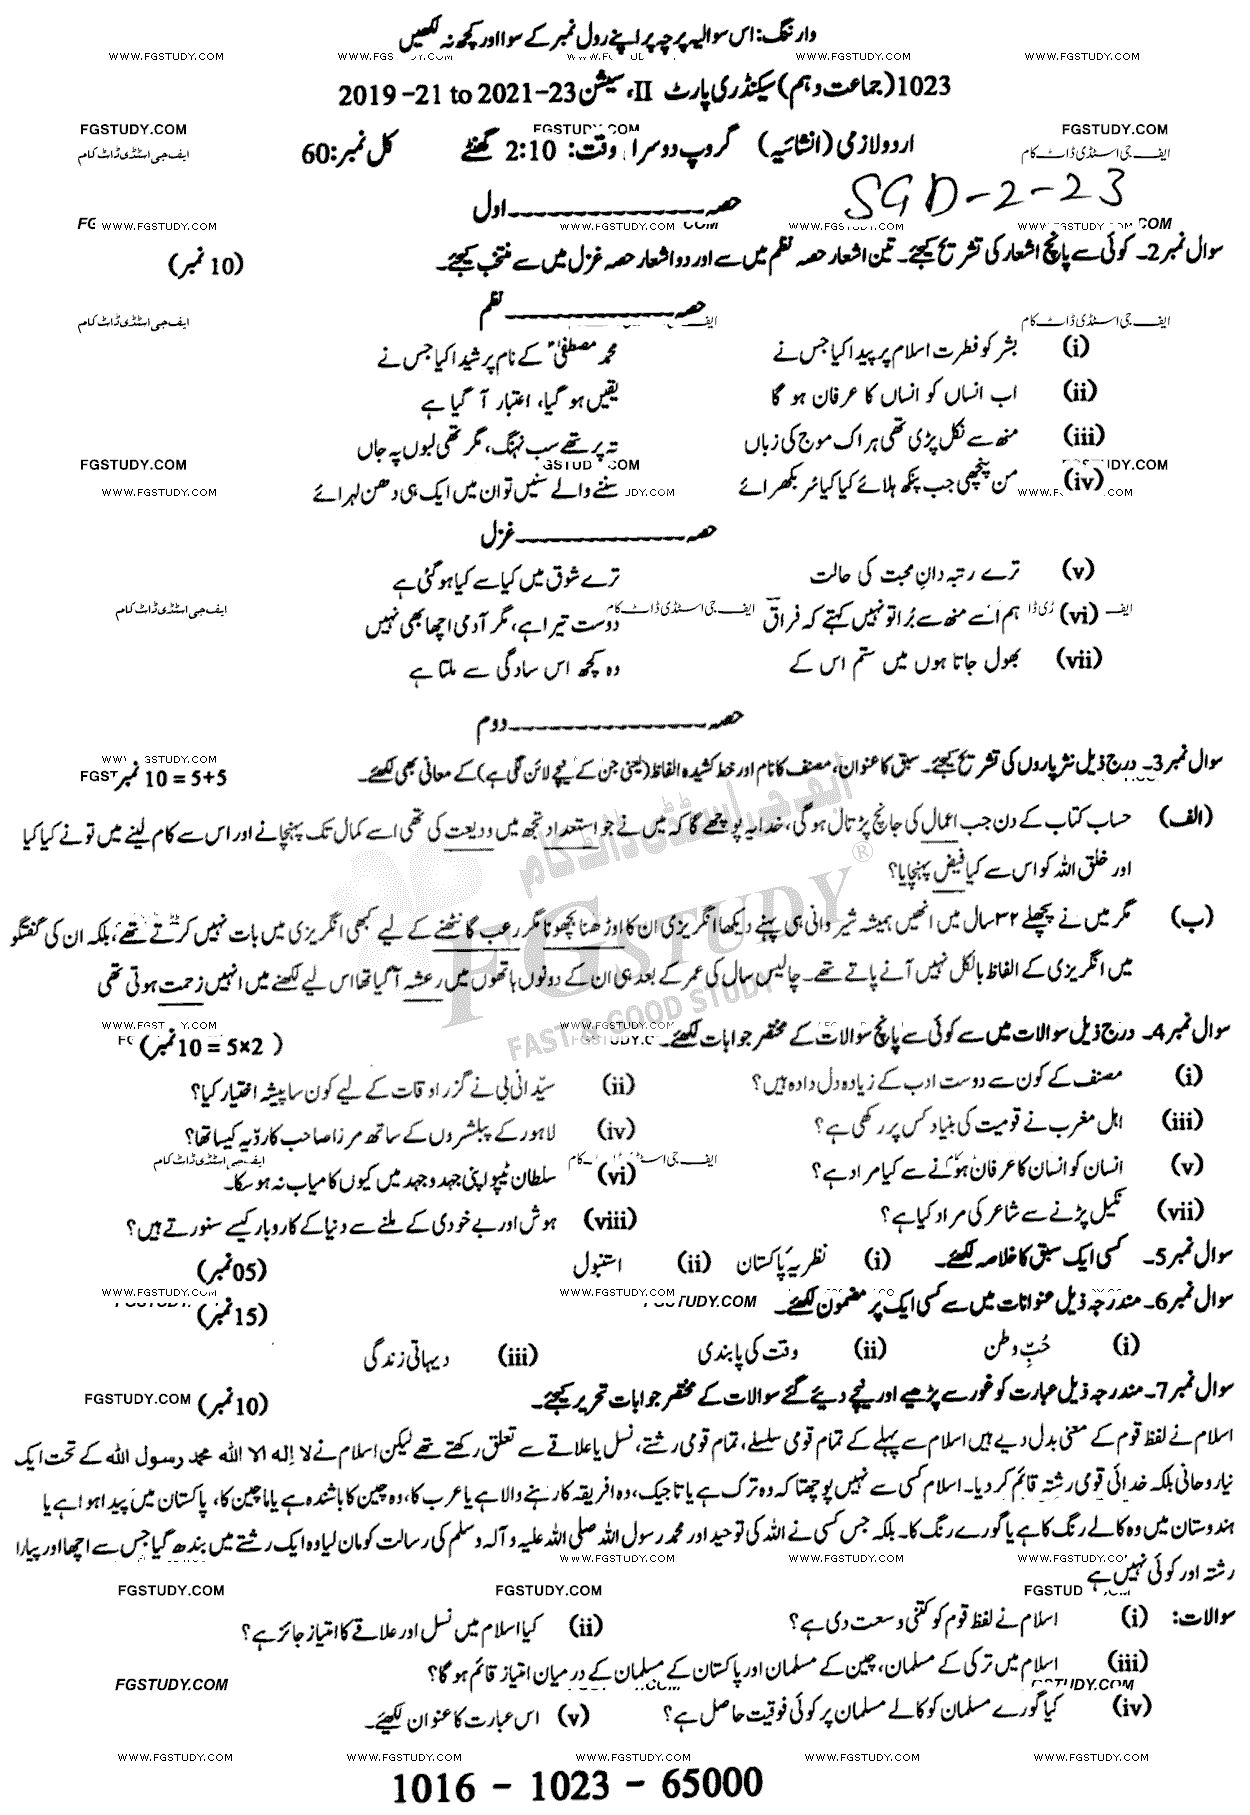 وارننگ: اس سوالیہ پرچہ پر اپنے رول نمبر کے سوا اور کچھ نہ لکھیں
WWW.FGSTUDY.COM WWW.FGSTUDY.COM WWW.FGSTUDY.COM
1023 (جماعت دہم) سیکنڈری پارٹ II، سیشن 2021-23 to 2019-21
FGSTUDY.COM FGSTUDY.COM FGSTUDY.COM
اردو لازمی (انشائیہ) گروپ دوسرا وقت: 2:10 گھنٹے کل نمبر: 60
ایف جی اسٹڈی ڈاٹ کام ایف جی اسٹڈی ڈاٹ کام
SGD-2-23
حصہ ــــــــــــ اول
WWW.FGSTUDY.COM WWW.FGSTUDY.COM WWW.FGSTUDY.COM
سوال نمبر 2۔ کوئی سے پانچ اشعار کی تشریح کیجئے۔ تین اشعار حصہ نظم میں سے اور دو اشعار حصہ غزل میں سے منتخب کیجئے۔ (10 نمبر)
حصہ ــــــــــــ نظم
(i) بشر کو فطرت اسلام پر پیدا کیا جس نے محمد مصطفیٰؐ کے نام پر شیدا کیا جس نے
(ii) اب انساں کو انساں کا عرفان ہو گا یقیں ہو گیا، اعتبار آ گیا ہے
(iii) منھ سے نکل پڑی تھی ہر اک موج کی زباں تہ پر تھے سب نہنگ، مگر تھی لبوں پہ جاں
(iv) من پنچھی جب پنکھ ہلائے کیا کیا سُر بکھرائے سننے والے سنیں تو ان میں ایک ہی دھن لہرائے
حصہ ــــــــــــ غزل
(v) ترے رتبہ دانِ محبت کی حالت ترے شوق میں کیا سے کیا ہو گئی ہے
(vi) ہم اُسے منھ سے بُرا تو نہیں کہتے کہ فراقؔ دوست تیرا ہے، مگر آدمی اچھا بھی نہیں
(vii) بھول جاتا ہوں میں ستم اس کے وہ کچھ اس سادگی سے ملتا ہے
حصہ ــــــــــــ دوم
سوال نمبر 3۔ درج ذیل نثر پاروں کی تشریح کیجئے۔ سبق کا عنوان، مصنف کا نام اور خط کشیدہ الفاظ (یعنی جن کے نیچے لائن لگی ہے) کے معانی بھی لکھئے۔ 5+5 = 10 نمبر
(الف) حساب کتاب کے دن جب اعمال کی جانچ پڑتال ہو گی، خدا یہ پوچھے گا کہ میں نے جو استعداد تجھ میں ودیعت کی تھی اسے کمال تک پہنچانے اور اس سے کام لینے میں تو نے کیا کیا
اور خلق اللہ کو اس سے کیا فیض پہنچایا؟
(ب) مگر میں نے پچھلے ۳۲ سال میں انھیں ہمیشہ شیروانی ہی پہنے دیکھا انگریزی ان کا اوڑھنا بچھونا مگر رعب گانٹھنے کے لیے کبھی انگریزی میں بات نہیں کرتے تھے، بلکہ ان کی گفتگو
میں انگریزی کے الفاظ بالکل نہیں آنے پاتے تھے۔ چالیس سال کی عمر کے بعد ہی ان کے دونوں ہاتھوں میں رعشہ آ گیا تھا اس لیے لکھنے میں انہیں زحمت ہوتی تھی
ایف جی اسٹڈی ڈاٹ کام
FG STUDY ®
FAST & GOOD STUDY
سوال نمبر 4۔ درج ذیل سوالات میں سے کوئی سے پانچ سوالات کے مختصر جوابات لکھئے۔ (5×2 = 10 نمبر)
(i) مصنف کے کون سے دوست ادب کے زیادہ دل دادہ ہیں؟ (ii) سیّدانی بی نے گزر اوقات کے لیے کون سا پیشہ اختیار کیا؟
(iii) اہل مغرب نے قومیت کی بنیاد کس پر رکھی ہے؟ (iv) لاہور کے پبلشروں کے ساتھ مرزا صاحب کا ردّیہ کیسا تھا؟
(v) انسان کو انسان کا عرفان ہونے سے کیا مراد ہے؟ (vi) سلطان ٹیپو اپنی جہد و جہد میں کیوں کامیاب نہ ہو سکا۔
(vii) نکیل پڑنے سے شاعر کی مراد کیا ہے؟ (viii) ہوش اور بے خودی کے ملنے سے دنیا کے کاروبار کیسے سنورتے ہیں؟
سوال نمبر 5۔ کسی ایک سبق کا خلاصہ لکھئے۔ (i) نظریۂ پاکستان (ii) استنبول (05 نمبر)
سوال نمبر 6۔ مندرجہ ذیل عنوانات میں سے کسی ایک پر مضمون لکھئے۔ (15 نمبر)
(i) حُبِّ وطن (ii) وقت کی پابندی (iii) دیہاتی زندگی
سوال نمبر 7۔ مندرجہ ذیل عبارت کو غور سے پڑھیے اور نیچے دیئے گئے سوالات کے مختصر جوابات تحریر کیجئے۔ (10 نمبر)
اسلام نے لفظ قوم کے معنی بدل دیے ہیں اسلام سے پہلے کے تمام قومی سلسلے، تمام قومی رشتے، نسل یا علاقے سے تعلق رکھتے تھے لیکن اسلام نے لا إله الا الله محمد رسول الله کے تحت ایک
نیا روحانی بلکہ خدائی قومی رشتہ قائم کر دیا۔ اسلام کسی سے نہیں پوچھتا کہ وہ ترک ہے یا تاجیک، وہ افریقہ کا رہنے والا ہے یا عرب کا، وہ چین کا باشندہ ہے یا ماچین کا، پاکستان میں پیدا ہوا ہے یا
ہندوستان میں وہ کالے رنگ کا ہے یا گورے رنگ کا۔ بلکہ جس کسی نے اللہ کی توحید اور محمد رسول اللہ صلی اللہ علیہ و آلہ وسلم کی رسالت کو مان لیا وہ ایک رشتے میں بندھ گیا جس سے اچھا اور پیارا
رشتہ اور کوئی نہیں ہے
FGSTUDY.COM FGSTUDY.COM
سوالات: (i) اسلام نے لفظ قوم کو کتنی وسعت دی ہے؟ (ii) کیا اسلام میں نسل اور علاقے کا امتیاز جائز ہے؟
(iii) اسلام میں ترکی کے مسلمان، چین کے مسلمان اور پاکستان کے مسلمان کے درمیان امتیاز قائم ہو گا؟
(iv) کیا گورے مسلمان کو کالے مسلمان پر کوئی فوقیت حاصل ہے؟ (v) اس عبارت کا عنوان لکھیئے۔
WWW.FGSTUDY.COM WWW.FGSTUDY.COM WWW.FGSTUDY.COM WWW.FGSTUDY.COM WWW.FGSTUDY.COM
1016 - 1023 - 65000